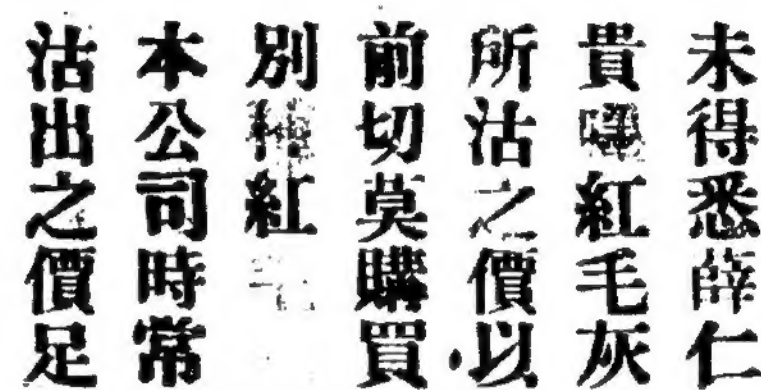 未得悉薛仁
貴嘜紅毛灰
所沽之價以
前切莫購買
別種紅
本公司時常
沽出之價足